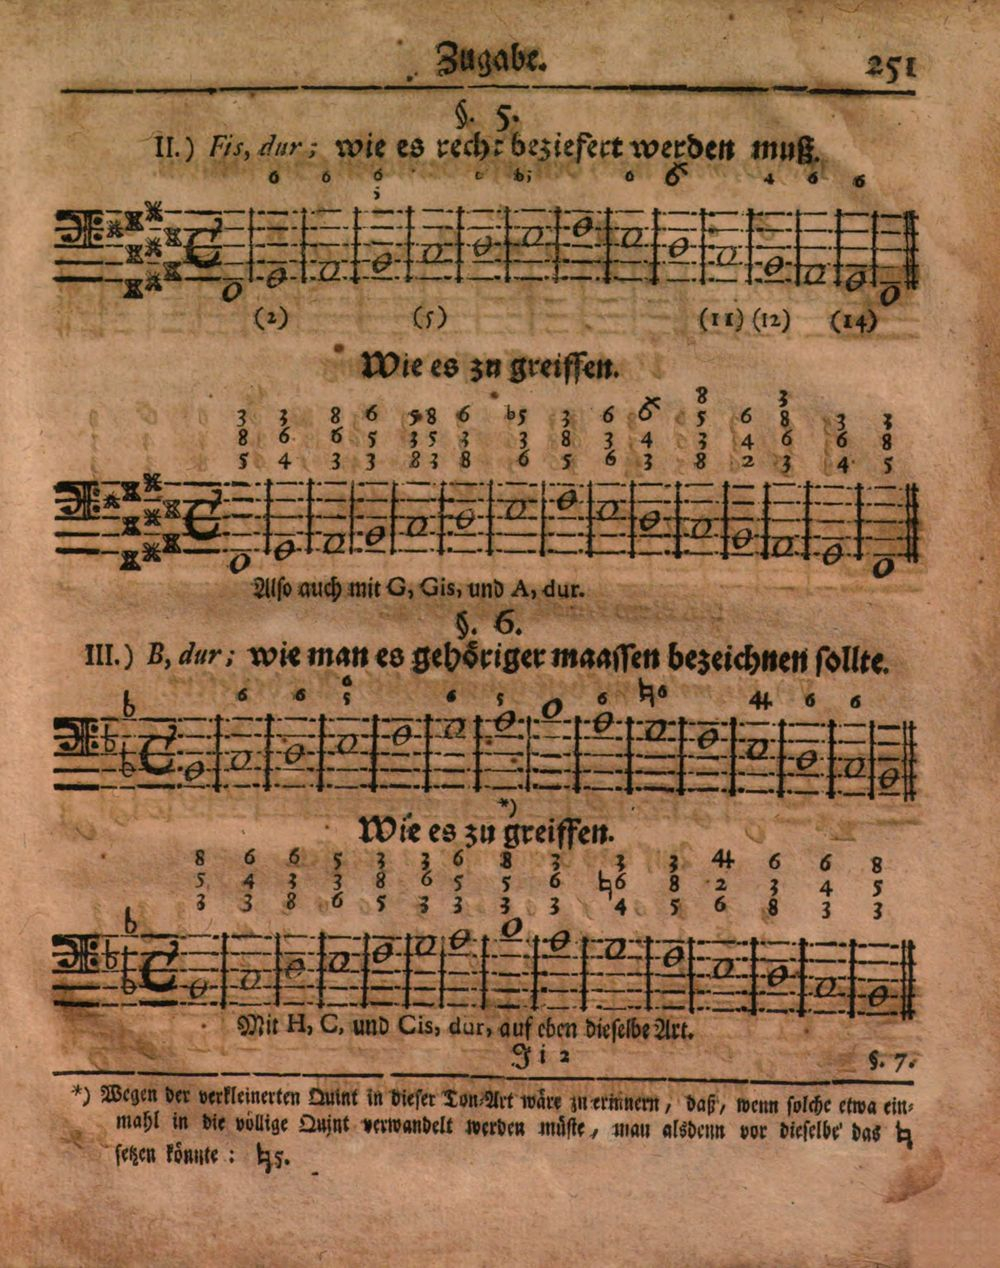 Zugabe. 251
§. 5.
II.) Fis, dur; wie es recht beziefert werden muß.
6 6 6 b5 6 6 4 6 6
5
(2) (5) (11) (12) (14)
Wie es zu greiffen.
8 3
3 3 8 6 5 8 6 b5 3 6 6 5 6 8 3 3
8 6 6 5 3 5 3 3 8 3 4 3 4 6 6 8
5 4 3 3 8 3 8 6 5 6 3 8 2 3 4 5
Also auch mit G, Gis, und A, dur.
§. 6.
III.) B, dur; wie man es gehöriger maassen bezeichnen sollte.
6 6 6 6 5 6 ♮6 4 6 6
5
*)
Wie es zu greiffen.
8 6 6 5 3 3 6 8 3 3 3 4 6 6 8
5 4 3 3 8 6 5 5 6 ♮6 8 2 3 4 5
3 3 8 6 5 3 3 3 3 4 5 6 8 3 3
Mit H, C, und Cis, dur, auf eben dieselbe Art.
Ji 2 §. 7.
*) Wegen der verkleinerten Quint in dieser Ton-Art wäre zu erinnern, daß, wenn solche etwa ein-
mahl in die völlige Quint verwandelt werden müste, man alsdenn vor dieselbe das ♮
setzen könnte: ♮5.